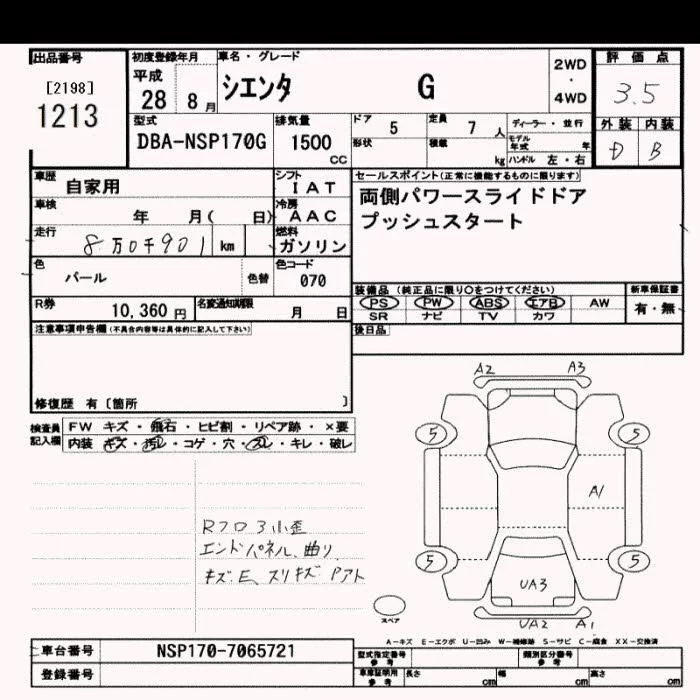 出品番号
[2198]
1213
初度登録年月
平成
28 8月
車名・グレード
シエンタ G
2WD
・
4WD
評価点
3.5
外装 内装
D B
型式
DBA-NSP170G
排気量
1500
CC
ドア
5
定員
7 人
形状
積載
kg
ディーラー・並行
モデル年式 年
ハンドル 左・右
車歴
自家用
シフト
IAT
車検
年 月( 日)
冷房
AAC
走行
8万0千901 km
燃料
ガソリン
色
パール
色替
色コード
070
R券
10,360 円
名変通知期限
月 日
セールスポイント(正常に機能するものに限ります)
両側パワースライドドア
プッシュスタート
装備品 (純正品に限り○をつけてください)
PS PW ABS エアB AW
SR ナビ TV カワ
新車保証書
有・無
後日品
注意事項申告欄(不具合内容等は具体的に記入して下さい)
修復歴 有〔箇所 〕
検査員
記入欄
FW キズ・飛石・ヒビ割・リペア跡・×要
内装 キズ・汚レ・コゲ・穴・スレ・キレ・破レ
A2 A3
5 5
A1
5 5
UA3
UA2 A1
スペア
Rフロ3小歪
エンドパネル、曲り
キズ、E、スリキズ Pアト
A-キズ E-エクボ U-凹み W-補修跡 S-サビ C-腐食 XX-交換済
車台番号
NSP170-7065721
登録番号
型式指定番号
参考
類別区分番号
参考
車庫証明用
参考
長さ cm
幅 cm
高さ cm